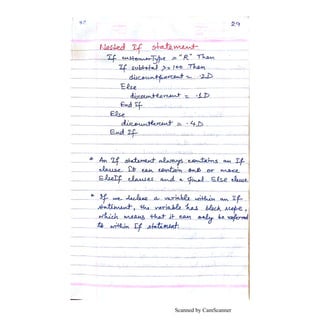 29
Nested If statement
If customerType = "R" Then
If subtotal >= 100 Then
discountpercent = .2D
Else
discountpercent = .1D
End If
Else
discountpercent = .4D
End If
* An If statement always contains an If
clause. It can contain one or more
ElseIf clauses and a final Else clause
* If we declare a variable within an If
statement, the variable has block scope,
which means that it can only be referred
to within If statement.
Scanned by CamScanner